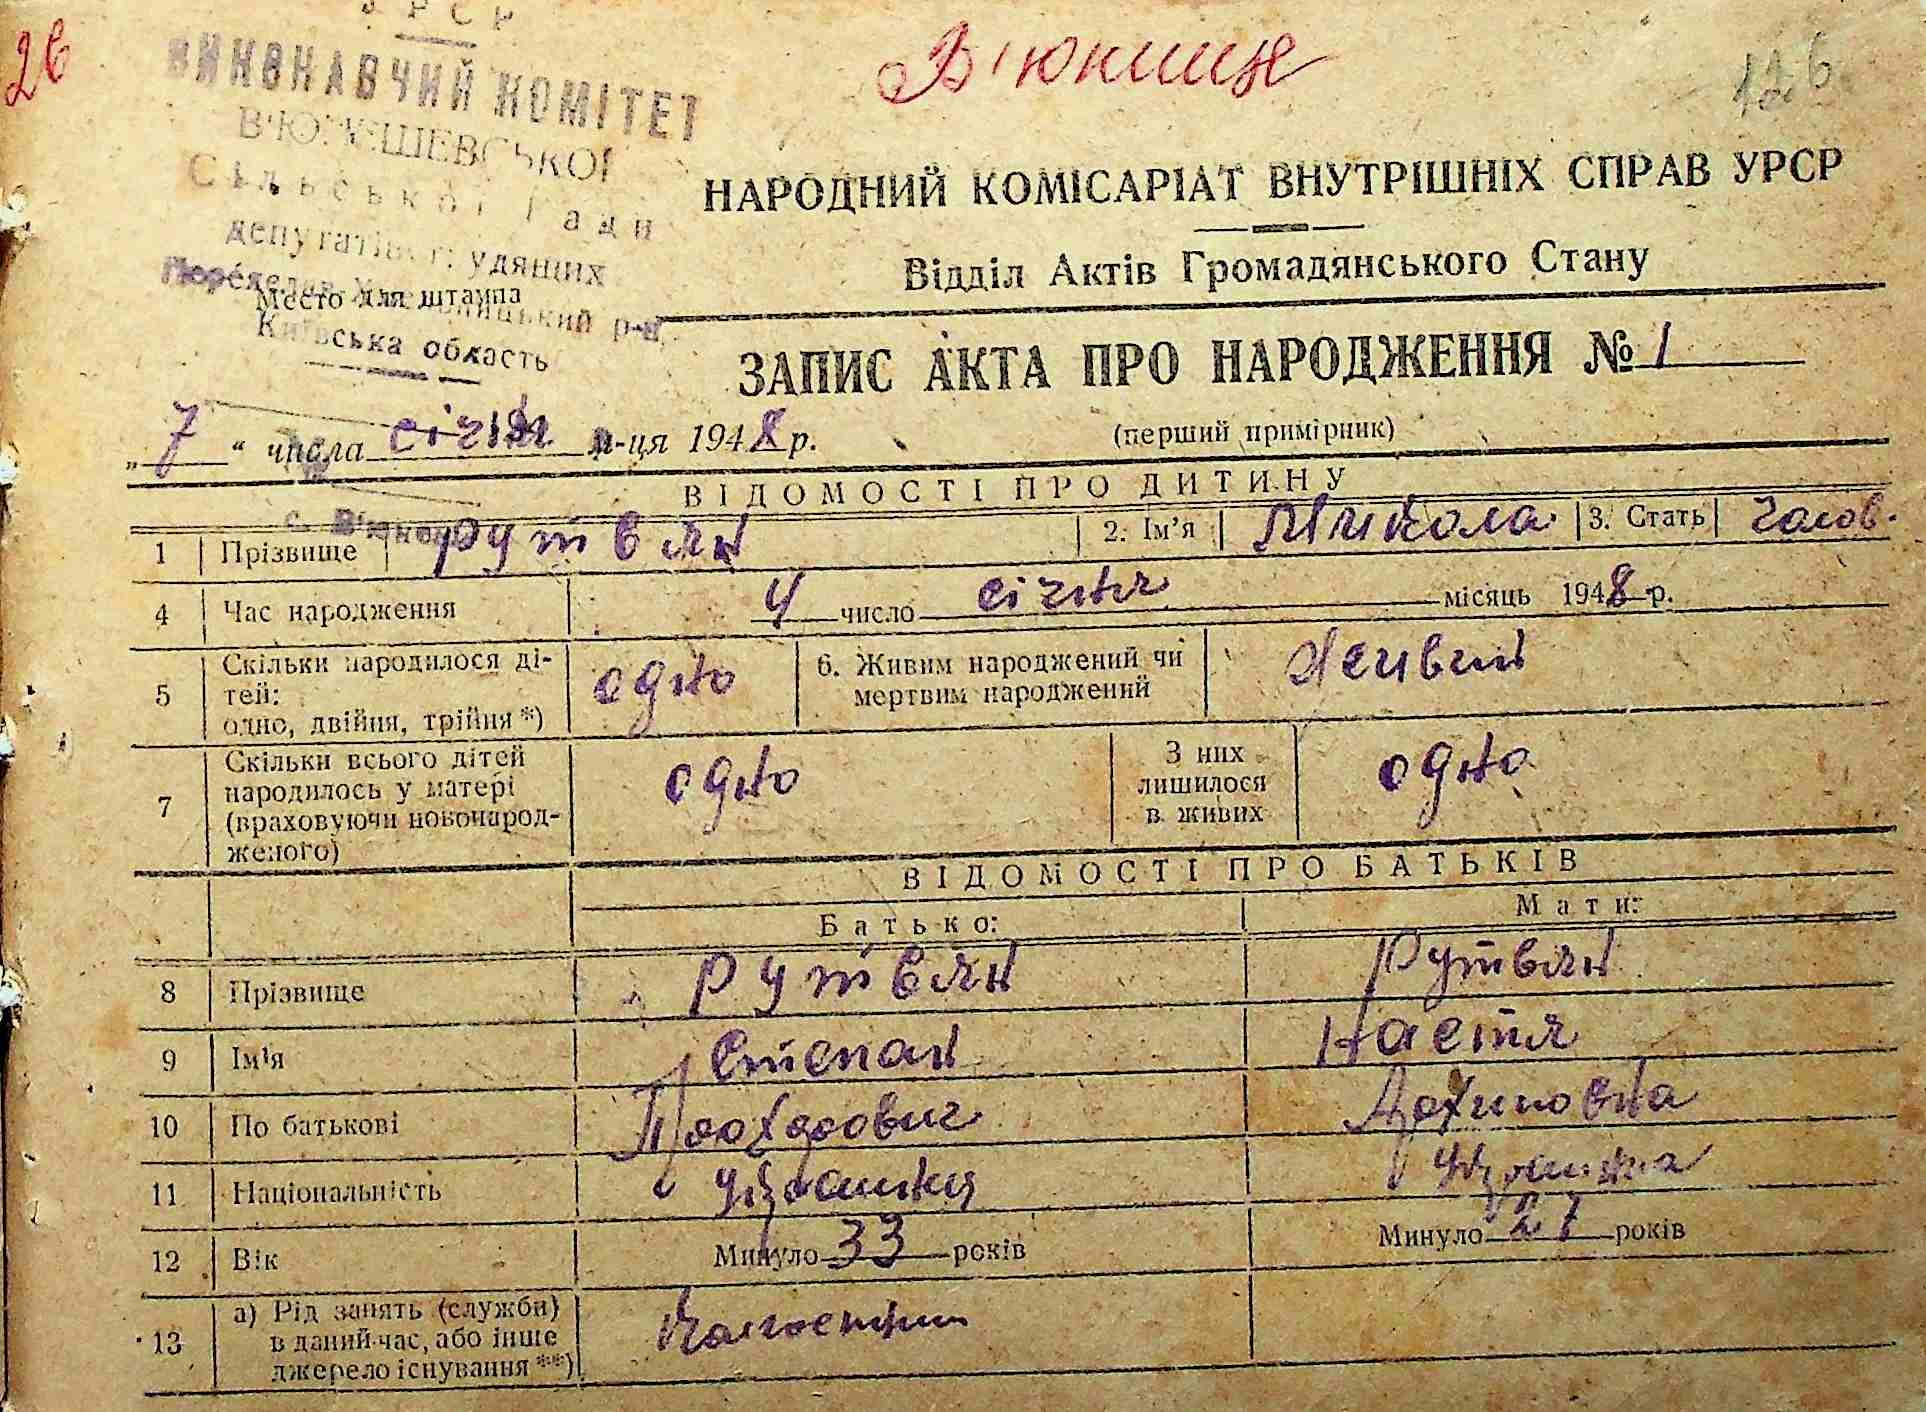 УРСР
2в
В'юнище
126
ВИКОНАВЧИЙ КОМІТЕТ
В'ЮНИЩЕВСЬКОЇ
Сільської Ради
депутатів трудящих
Переяслав-Хмельницький р-н
Место для штампа
Київська область
НАРОДНИЙ КОМІСАРІАТ ВНУТРІШНІХ СПРАВ УРСР
Відділ Актів Громадянського Стану
ЗАПИС АКТА ПРО НАРОДЖЕННЯ № 1
„ 7 “ числа січня м-ця 1948 р.
(перший примірник)
ВІДОМОСТІ ПРО ДИТИНУ
с. В'юнище
1 Прізвище Рутвян 2. Ім'я Микола 3. Стать Чолов.
4 Час народження 4 число січня місяць 1948 р.
5 Скільки народилося ді-
тей:
одно, двійня, трійня *) одно 6. Живим народжений чи
мертвим народжений Живий
7 Скільки всього дітей
народилось у матері
(враховуючи новонарод-
женого) одно З них
лишилося
в живих одно
ВІДОМОСТІ ПРО БАТЬКІВ
Батько: Мати:
8 Прізвище Рутвян Рутвян
9 Ім'я Степан Настя
10 По батькові Прохорович
11 Національність Українка
12 Вік Минуло 33 років Минуло 27 років
13 а) Рід занять (служби)
в даний час, або інше
джерело існування **)